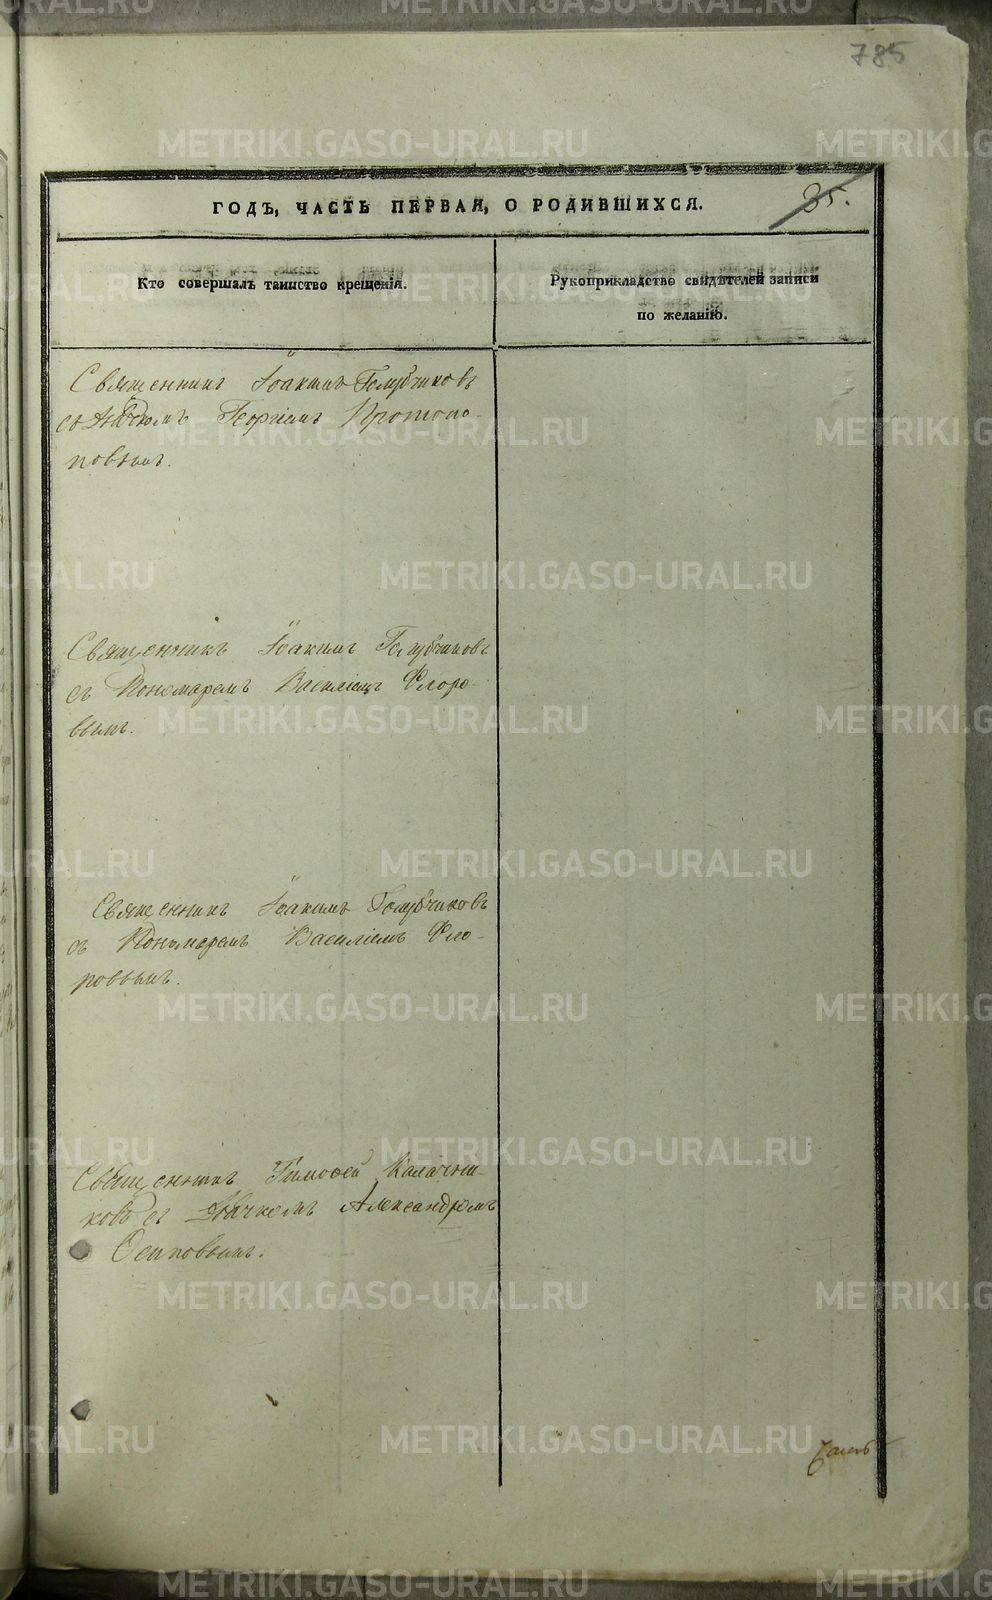 785
ГОДЪ, ЧАСТЬ ПЕРВАЯ, О РОДИВШИХСЯ.
35.
Кто совершалъ таинство крещенія.
Рукоприкладство свидѣтелей записи
по желанію.
Священникъ Іоакимъ Голубчиковъ
съ Дьячкомъ Георгіемъ Протопо-
повымъ.
Священникъ Іоакимъ Голубчиковъ
съ Пономаремъ Василіемъ Флоро-
вымъ.
Священникъ Іоакимъ Голубчиковъ
съ Пономаремъ Василіемъ Фло-
ровымъ.
Священникъ Тимофей Калачни-
ковъ съ Дьячкомъ Александромъ
Осиповымъ.
METRIKI.GASO-URAL.RU